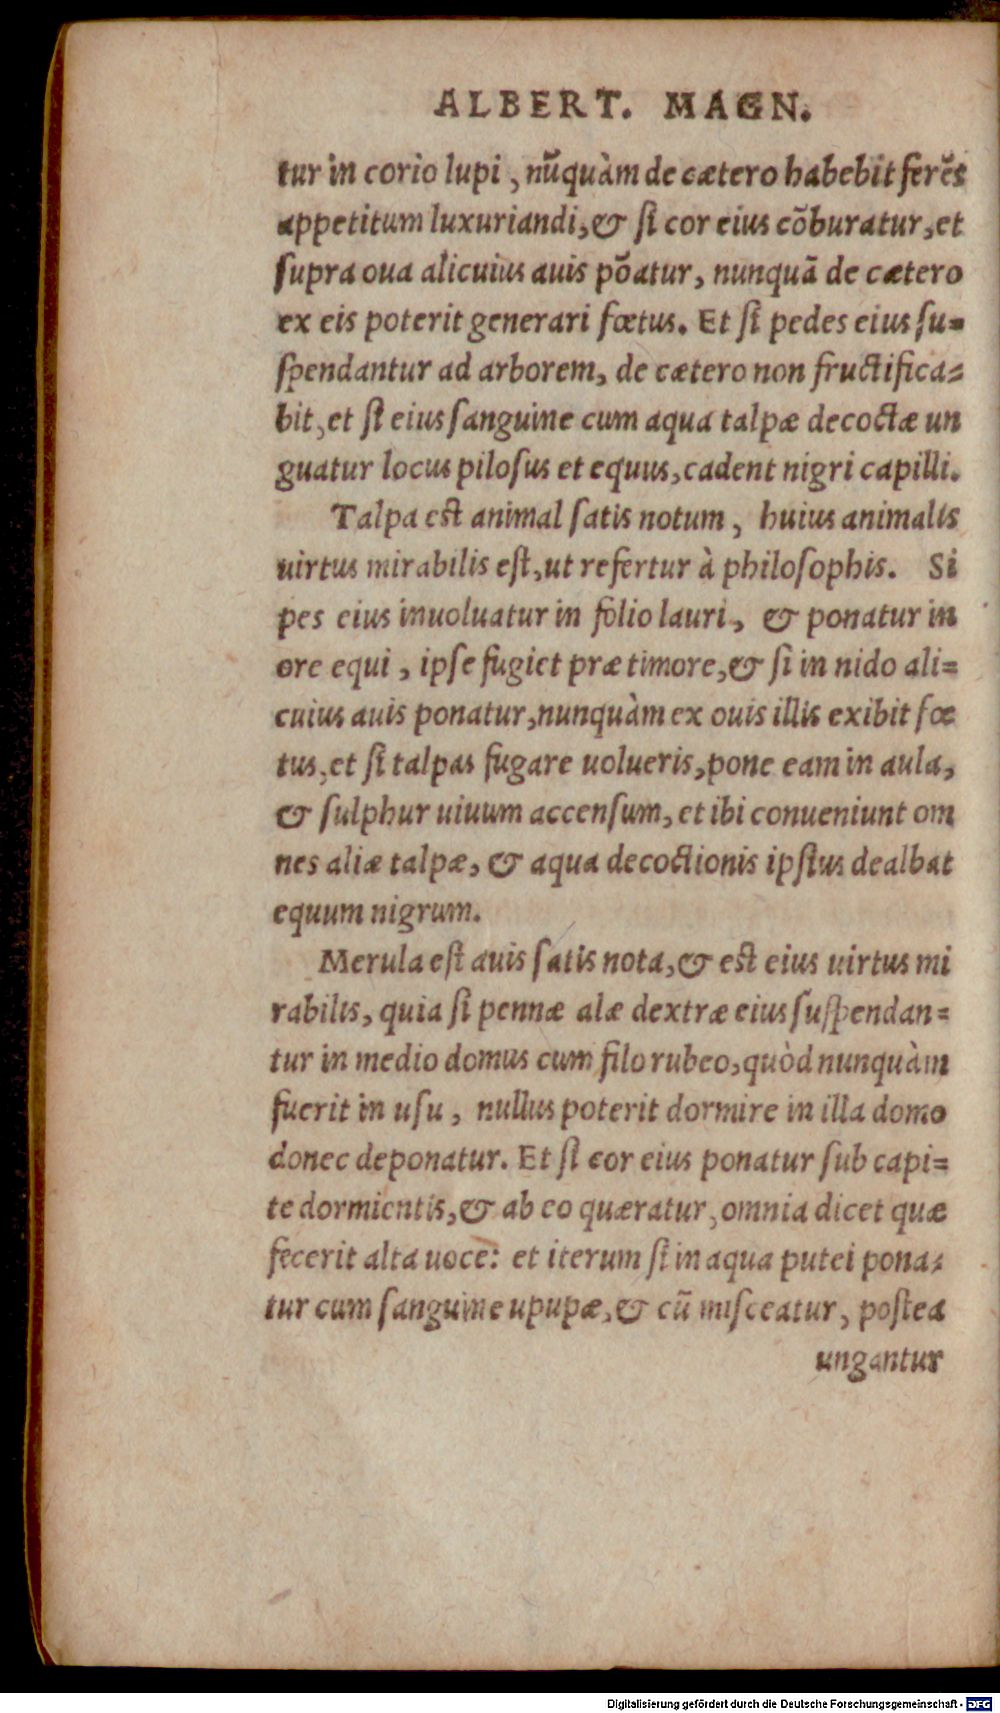 ALBERT. MAGN.
tur in corio lupi, nũquàm de cætero habebit ferẽs
appetitum luxuriandi, & si cor eius cõburatur, et
supra oua alicuius auis põatur, nunquã de cætero
ex eis poterit generari fœtus. Et si pedes eius su=
spendantur ad arborem, de cætero non fructifica=
bit, et si eius sanguine cum aqua talpæ decoctæ un
guatur locus pilosus et equus, cadent nigri capilli.
Talpa est animal satis notum, huius animalis
uirtus mirabilis est, ut refertur à philosophis. Si
pes eius inuoluatur in folio lauri, & ponatur in
ore equi, ipse fugiet præ timore, & si in nido ali=
cuius auis ponatur, nunquàm ex ouis illis exibit fœ
tus, et si talpas fugare uolueris, pone eam in aula,
& sulphur uiuum accensum, et ibi conueniunt om
nes aliæ talpæ, & aqua decoctionis ipsius dealbat
equum nigrum.
Merula est auis satis nota, & est eius uirtus mi
rabilis, quia si pennæ alæ dextræ eius suspendan=
tur in medio domus cum filo rubeo, quòd nunquàm
fuerit in usu, nullus poterit dormire in illa domo
donec deponatur. Et si cor eius ponatur sub capi=
te dormientis, & ab eo quæratur, omnia dicet quæ
fecerit alta uoce: et iterum si in aqua putei pona=
tur cum sanguine upupæ, & cũ misceatur, postea
ungantur
Digitalisierung gefördert durch die Deutsche Forschungsgemeinschaft - DFG